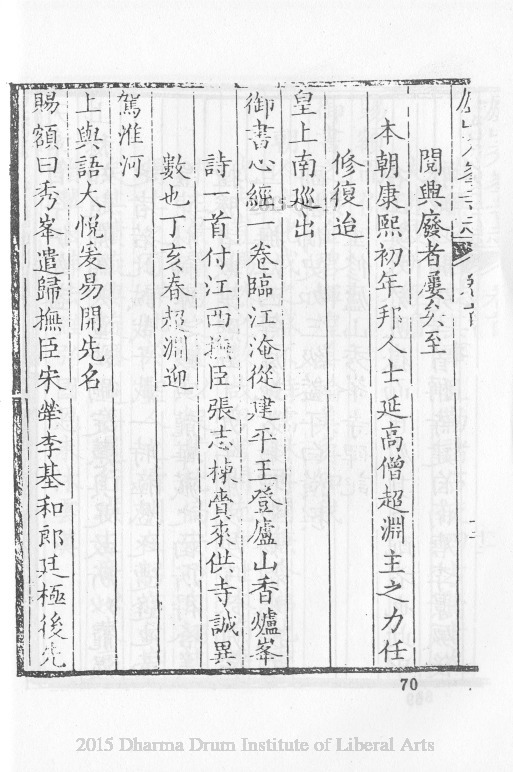 閱興廢者屢矣至
本朝康熙初年邦人士延高僧超淵主之力任
修復迨
皇上南巡出
御書心經一卷臨江淹從建平王登廬山香爐峯
詩一首付江西撫臣張志棟賫來供寺誠異
數也丁亥春超淵迎
駕淮河
上與語大悅爰易開先名
賜額曰秀峯遣歸撫臣宋犖李基和郎廷極後先
70
2015 Dharma Drum Institute of Liberal Arts